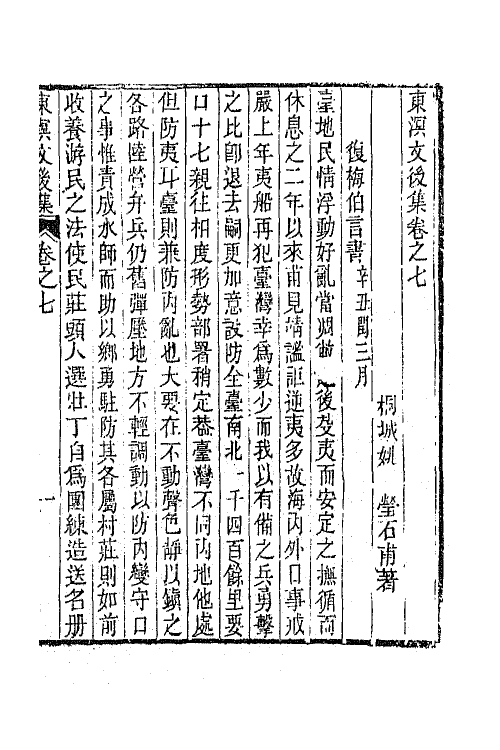 東溟文後集卷之七
桐城姚　瑩石甫著
復梅伯言書辛丑閏三月
臺地民情浮動好亂當凋之後芟夷而安定之撫循而
休息之二年以來甫見靖謐詎逆夷多故海內外日事戒
嚴上年夷船再犯臺灣幸爲數少而我以有備之兵勇擊
之比卽退去嗣更加意設防全臺南北一千四百餘里要
口十七親往相度形勢部署稍定葢臺灣不同內地他處
但防夷耳臺則兼防內亂也大要在不動聲色靜以鎮之
各路陸營弁兵仍舊彈壓地方不輕調動以防內變守口
之事惟責成水師而助以鄉勇駐防其各屬村莊則如前
收養游民之法使民莊頭人選壯丁自爲團練造送名册
東溟文後集　卷之七　一